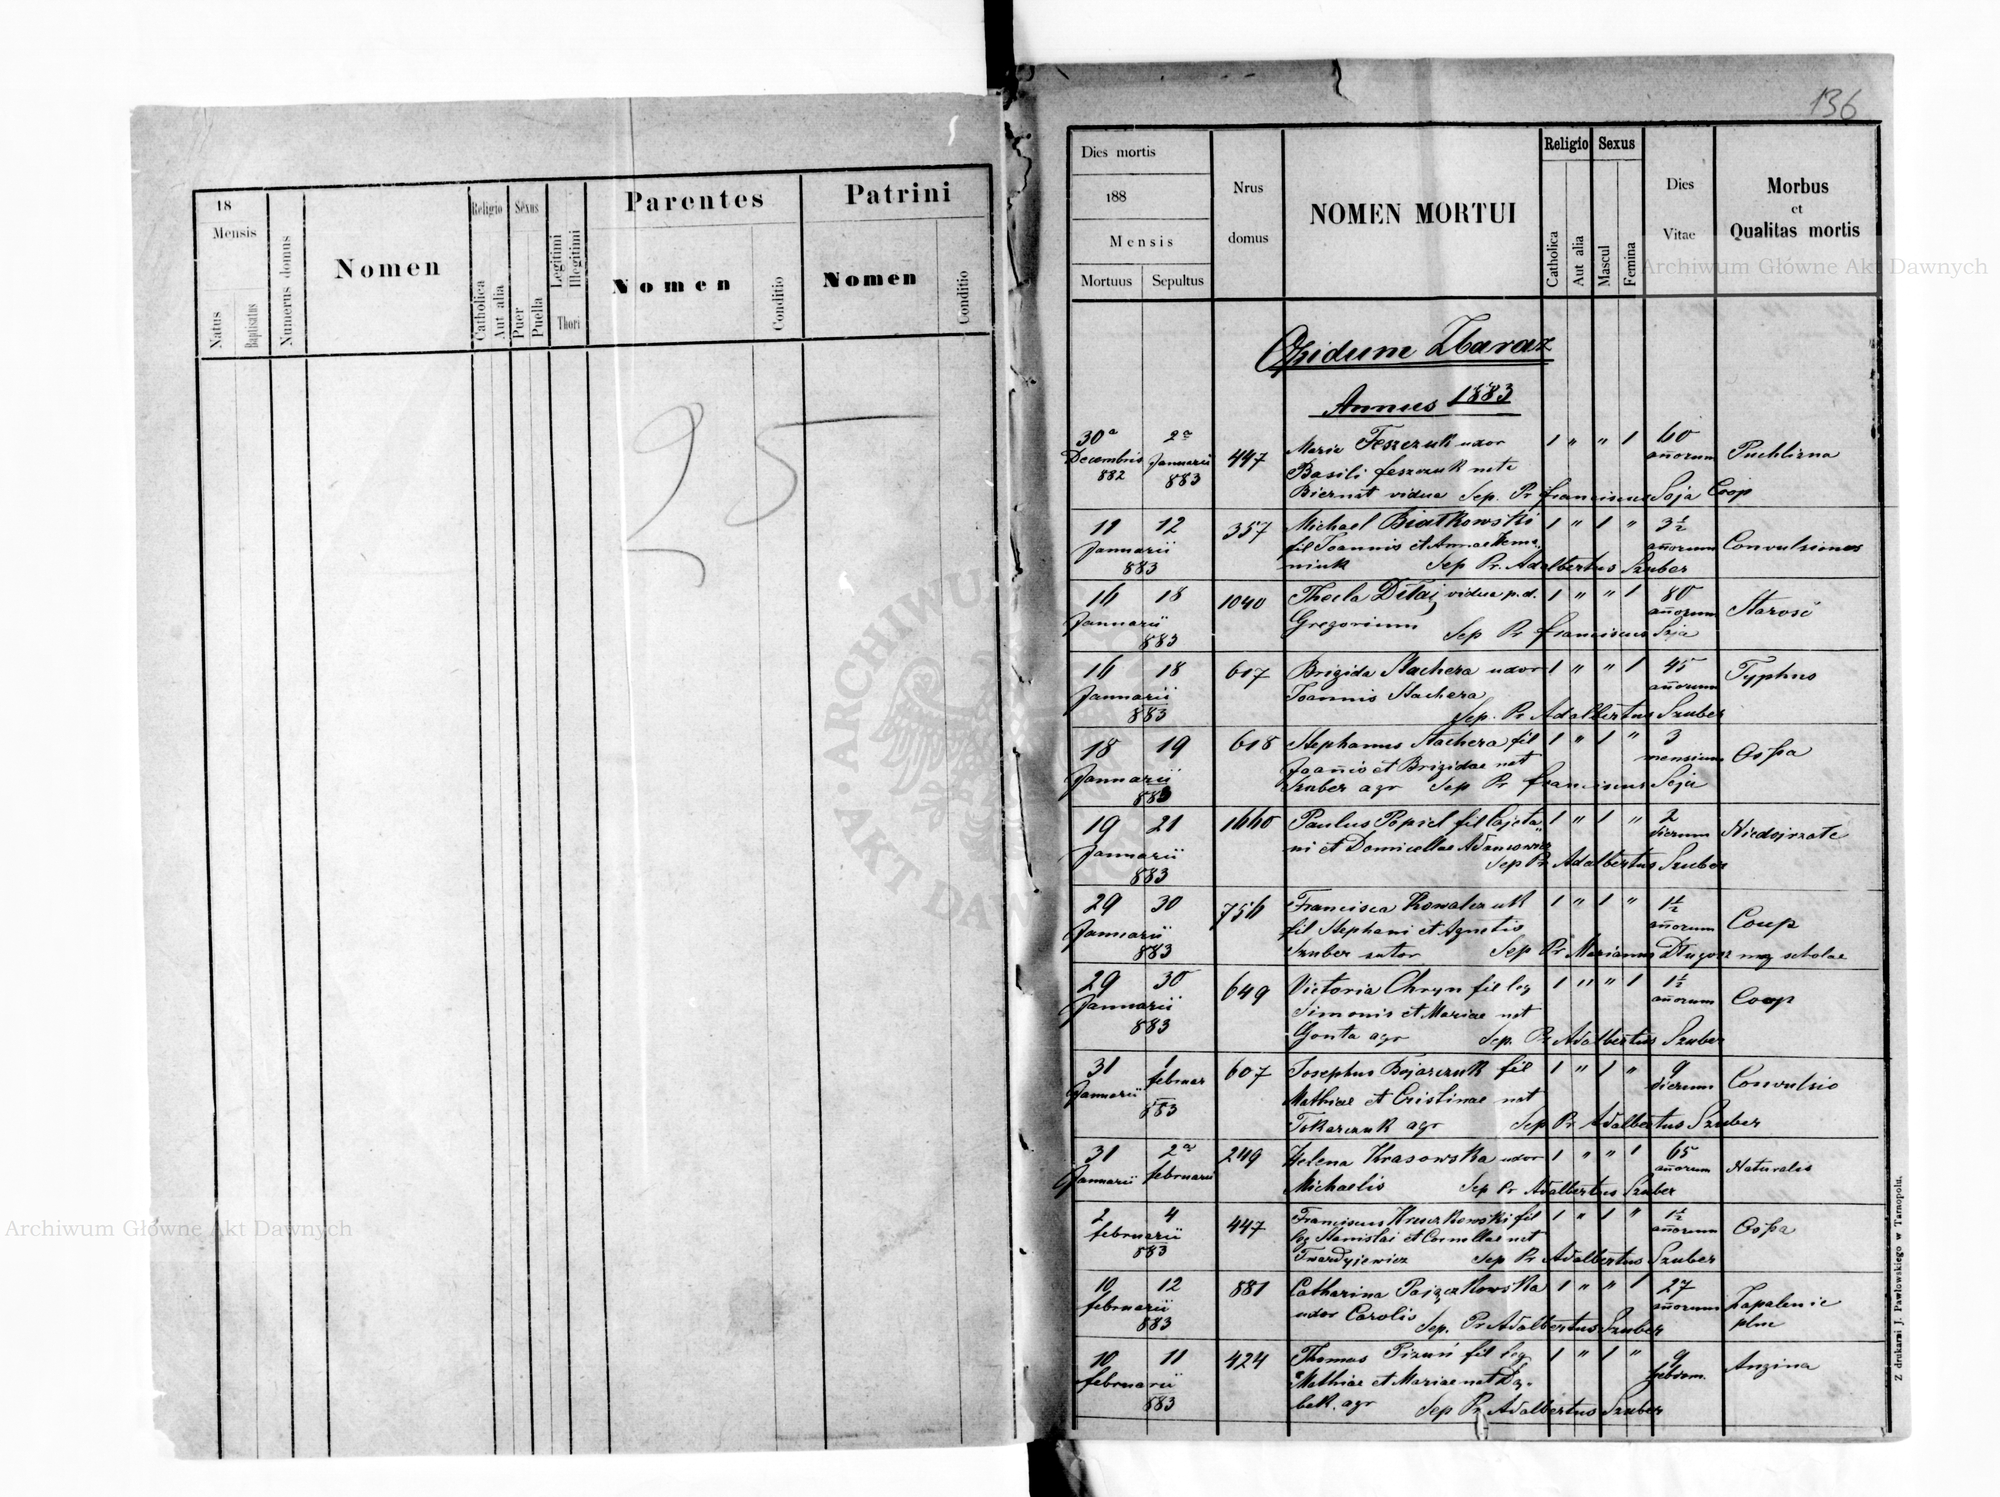 18
Mensis
Natus
Baptisatus
Numerus domus
Nomen
Religio
Catholica
Aut alia
Sexus
Puer
Puella
Legitimi
Illegitimi
Thori
Parentes
Nomen
Conditio
Patrini
Nomen
Conditio
95
136
Dies mortis
188
Mensis
Mortuus
Sepultus
Nrus
domus
NOMEN MORTUI
Religio
Catholica
Aut alia
Sexus
Mascul
Femina
Dies
Vitae
Morbus
et
Qualitas mortis
Opidum Zbaraz
Annus 1883
30a 2a 447 Maria Feszczuk uxor 1 " " 1 60 Puchlizna
Decembris Januarii Basili Feszczuk nata añorum
882 883 Biernat vidua Sep. Pr Franciscus Soja Coop
11 12 357 Michael Białkowski 1 " 1 " 3 1/2 Convulsiones
Januarii fil Joannis et Annae añorum
883 niuk Sep Pr. Adalbertus Szuber
16 18 1040 Thecla vidua p.d. 1 " " 1 80 Starość
Januarii Gregorium añorum
883 Sep Pr Franciscus Soja
16 18 617 Brigida Stachera uxor 1 " " 1 45 Typhus
Januarii Joannis Stachera añorum
883 Sep. Pr Adalbertus Szuber
18 19 618 Stephanus Stachera fil 1 " 1 " 3 Ospa
Januarii Joañis et Brigidae nat mensium
883 Szuber agr Sep Pr Franciscus Soja
19 21 1660 Paulus Popiel fil Cajeta 1 " 1 " 2
Januarii ni et Domicellae Adamowicz dierum
883 Sep Pr Adalbertus Szuber
29 30 756 Francisca Kowalczuk 1 " 1 " 1 1/2 Coup
Januarii fil Stephani et Agnetis añorum
883 Szuber sutor Sep Pr Marianus Długosz mag scholae
29 30 649 Victoria Chryn fil leg 1 " " 1 1 1/2 Coup
Januarii Simonis et Mariae nat añorum
883 Gonta agr Sep. Pr Adalbertus Szuber
31 1 607 Josephus Bojarczuk fil 1 " 1 " 9 Convulsio
Januarii februar Mathiae et Cristinae nat dierum
883 Tokarczuk agr Sep Pr Adalbertus Szuber
31 2a 249 Helena Krasowska uxor 1 " " 1 65 Naturalis
Januarii februarii Michaelis añorum Sep Pr Adalbertus Szuber
2 4 447 Franciscus Kruczkowski fil 1 " 1 " 1 1/2 Ospa
februarii leg Stanislai et Cornellae nat añorum
883 Twardyjewicz Sep Pr Adalbertus Szuber
10 12 881 Catharina Pajączkowska 1 " " 1 27 Zapalenie
februarii uxor Carolis añorum płuc
883 Sep. Pr Adalbertus Szuber
10 11 424 Thomas Pizuń fil leg 1 " 1 " 9 Angina
februarii Mathiae et Mariae nat hebdom.
883 bek. agr Sep Pr Adalbertus Szuber
Z drukarni J. Pawłowskiego w Tarnopolu.
Archiwum Główne Akt Dawnych
Archiwum Główne Akt Dawnych